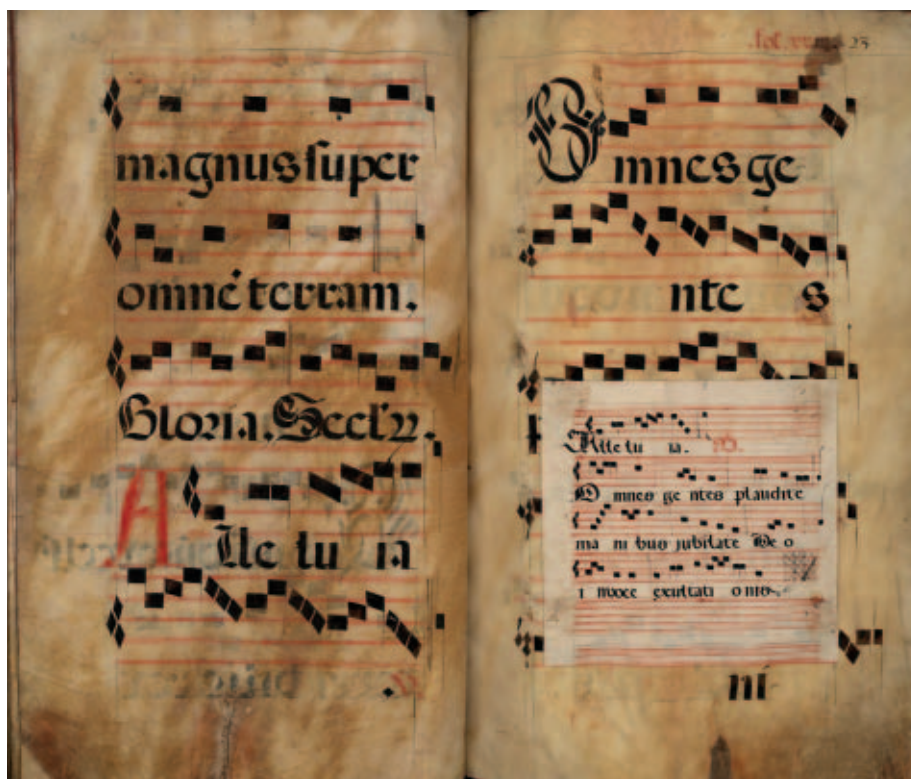 magnus ſuper
omné terram.
Gloria. Seculȝ.
Alle lu ia
23
Omnes ge
nte s
Alle lu ia.
O mnes ge ntes plaudite
ma ni bus jubilate De o
i nvoce exultati onis.
ni